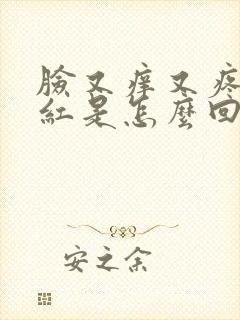 臉又痒又疼
紅是怎麼回
安之余